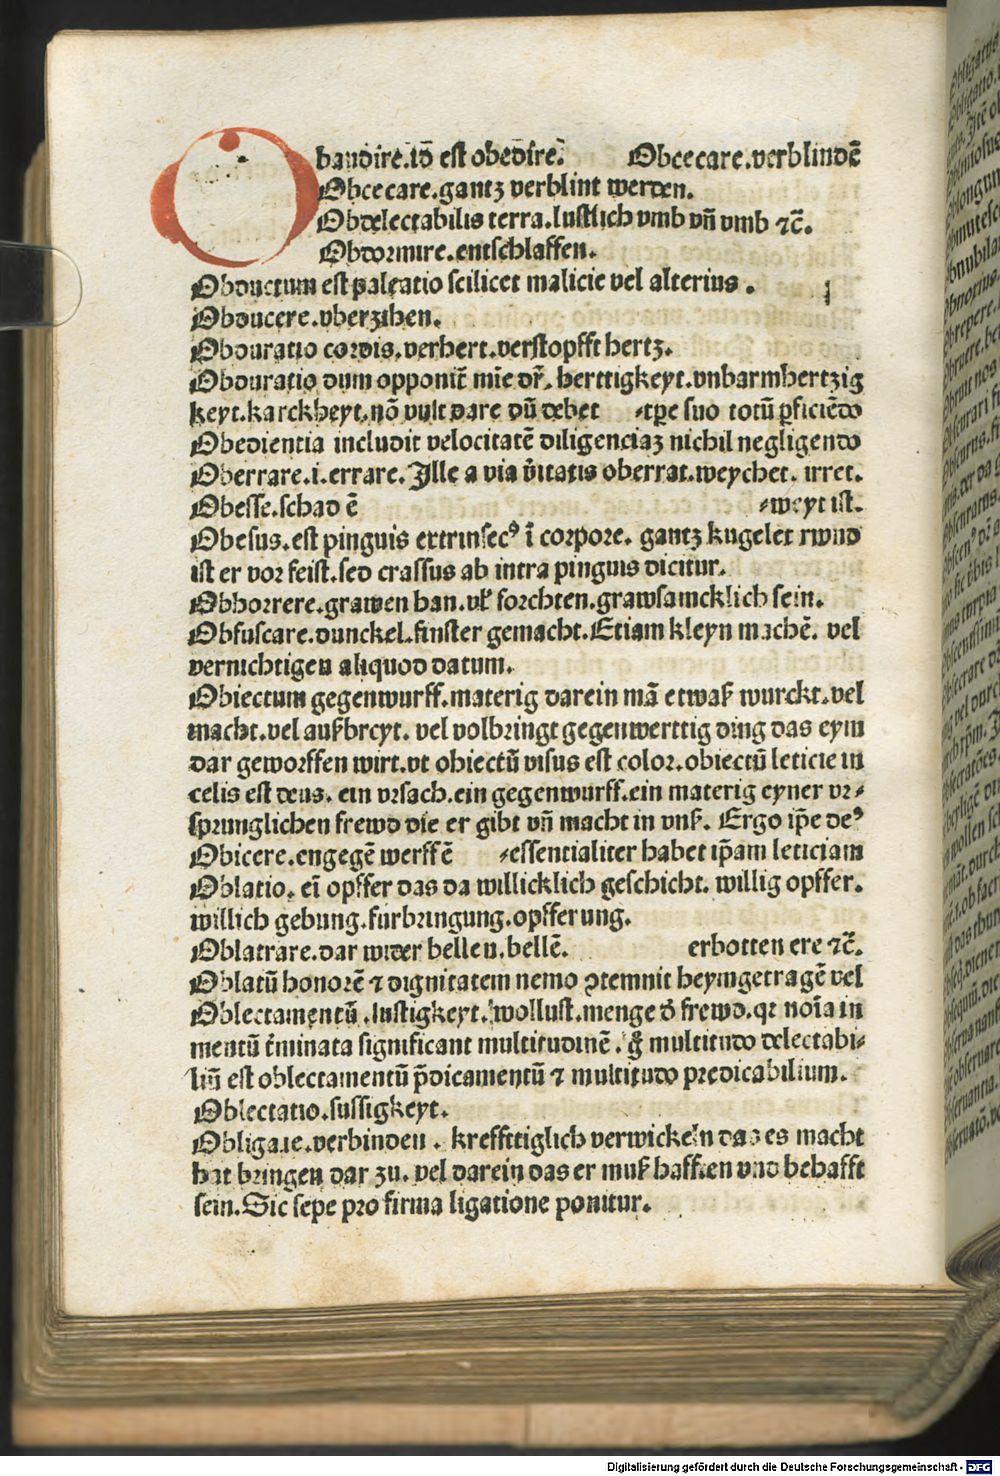 Obaudire.id̄ est obedire. Obcecare.verblindē
Obcecare.gantz verblint werden.
Obdelectabilis terra.lustlich vmb vn̄ vmb ⁊c̄.
Obdormire.entschlaffen.
Obductum est paleatio scilicet malicie vel alterius.
Obducere.vberzihen.
Obduratio cordis.verhert.verstopfft hertz.
Obduratio dum opponit̄ mīe dr̄. herttigkeyt.vnbarmhertzig
keyt.karckheyt.nō vult dare dū debet ⸗tꝑe suo totū ꝑficiēdo
Obedientia includit velocitatē diligenciaꝫ nichil negligendo
Oberrare.i.errare.Ille a via v̄itatis oberrat.weychet. irret.
Obesse.schadē ⸗weyt ist.
Obesus.est pinguis extrinsecꝰ ī corpore. gantz kugelet rwnd
ist er vor feist.sed crassus ab intra pinguis dicitur.
Obhorrere.grawen han.vel forchten.grawsamcklich sein.
Obfuscare.dunckel.finster gemacht.Etiam kleyn machē. vel
vernichtigen aliquod datum.
Obiectum gegenwurff.materig darein mā etwaß wurckt.vel
macht.vel außbreyt. vel volbringt gegenwerttig ding das eym
dar geworffen wirt.vt obiectū visus est color.obiectū leticie in
celis est deus. ein vrsach.ein gegenwurff.ein materig eyner vr⸗
sprunglichen frewd die er gibt vn̄ macht in vnß. Ergo ip̄e deꝰ
Obicere.engegē werffē ⸗essentialiter habet ip̄am leticiam
Oblatio. eī opffer das da willicklich geschicht. willig opffer.
willich gebung.furbringung.opfferung.
Oblatrare.dar wider bellen.bellē. erbotten ere ⁊c̄.
Oblatū honorē ⁊ dignitatem nemo ꝯtemnit heymgetragē vel
Oblectamentū.lustigkeyt.wollust.menge d̄ frewd.qꝛ noīa in
mentū t̄minata significant multitudinē. g̊ multitudo delectabi⸗
liū est oblectamentū p̄dicamentū ⁊ multitudo predicabilium.
Oblectatio.sussigkeyt.
Obligare.verbinden. krefftiglich verwickeln das es macht
hat bringen dar zu. vel darein das er muß hafften vnd behafft
sein.Sic sepe pro firma ligatione ponitur.
Digitalisierung gefördert durch die Deutsche Forschungsgemeinschaft - DFG